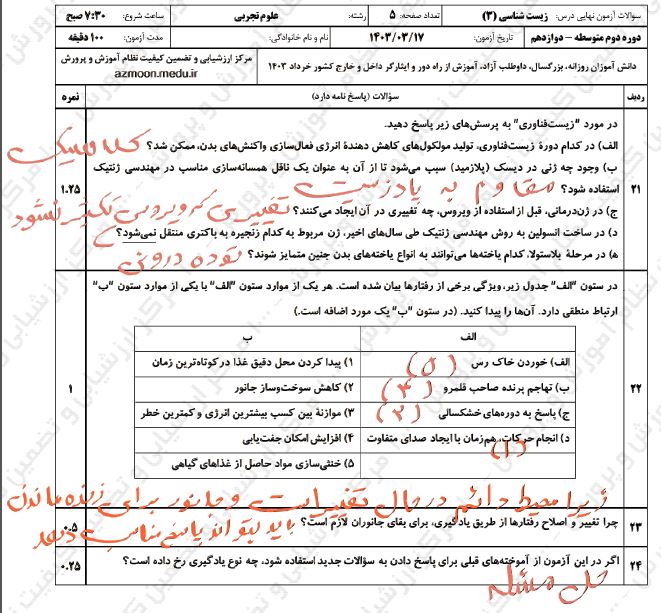 سوالات آزمون نهایی درس: زیست شناسی (۳) تعداد صفحه: ۵ رشته: علوم تجربی ساعت شروع: ۷:۳۰ صبح
دوره دوم متوسطه - دوازدهم تاریخ آزمون: ۱۴۰۳/۰۳/۱۷ نام و نام خانوادگی: مدت آزمون: ۱۰۰ دقیقه
دانش آموزان روزانه، بزرگسال، داوطلب آزاد، آموزش از راه دور و ایثارگر داخل و خارج کشور خرداد ۱۴۰۳ مرکز ارزشیابی و تضمین کیفیت نظام آموزش و پرورش
azmoon.medu.ir
ردیف سؤالات (پاسخ نامه دارد) نمره
در مورد "زیست‌فناوری" به پرسش‌های زیر پاسخ دهید.
الف) در کدام دورۀ زیست‌فناوری، تولید مولکول‌های کاهش دهندۀ انرژی فعال‌سازی واکنش‌های بدن، ممکن شد؟ کلاسیک
ب) وجود چه ژنی در دیسک (پلازمید) سبب می‌شود تا از آن به عنوان یک ناقل همسانه‌سازی مناسب در مهندسی ژنتیک
۲۱ استفاده شود؟ مقاوم به پادزیست ۱.۲۵
ج) در ژن‌درمانی، قبل از استفاده از ویروس، چه تغییری در آن ایجاد می‌کنند؟ تغییری که ویروس تکثیر نشود
د) در ساخت انسولین به روش مهندسی ژنتیک طی سال‌های اخیر، ژن مربوط به کدام زنجیره به باکتری منتقل نمی‌شود؟
ه) در مرحلۀ بلاستولا، کدام یاخته‌ها می‌توانند به انواع یاخته‌های بدن جنین متمایز شوند؟ توده درونی
در ستون "الف" جدول زیر، ویژگی برخی از رفتارها بیان شده است. هر یک از موارد ستون "الف" با یکی از موارد ستون "ب"
ارتباط منطقی دارد. آن‌ها را پیدا کنید. (در ستون "ب" یک مورد اضافه است.)
الف ب
الف) خوردن خاک رس (۵) ۱) پیدا کردن محل دقیق غذا در کوتاه‌ترین زمان
۲۲ ب) تهاجم پرنده صاحب قلمرو (۴) ۲) کاهش سوخت‌وساز جانور ۱
ج) پاسخ به دوره‌های خشکسالی (۲) ۳) موازنۀ بین کسب بیشترین انرژی و کمترین خطر
د) انجام حرکات، هم‌زمان با ایجاد صدای متفاوت (۱) ۴) افزایش امکان جفت‌یابی
۵) خنثی‌سازی مواد حاصل از غذاهای گیاهی
زیرا محیط دائم در حال تغییر است و جانور برای زنده ماندن
۲۳ چرا تغییر و اصلاح رفتارها از طریق یادگیری، برای بقای جانوران لازم است؟ باید بتواند پاسخ مناسب دهد ۰.۵
۲۴ اگر در این آزمون از آموخته‌های قبلی برای پاسخ دادن به سؤالات جدید استفاده شود، چه نوع یادگیری رخ داده است؟ ۰.۲۵
حل مسئله